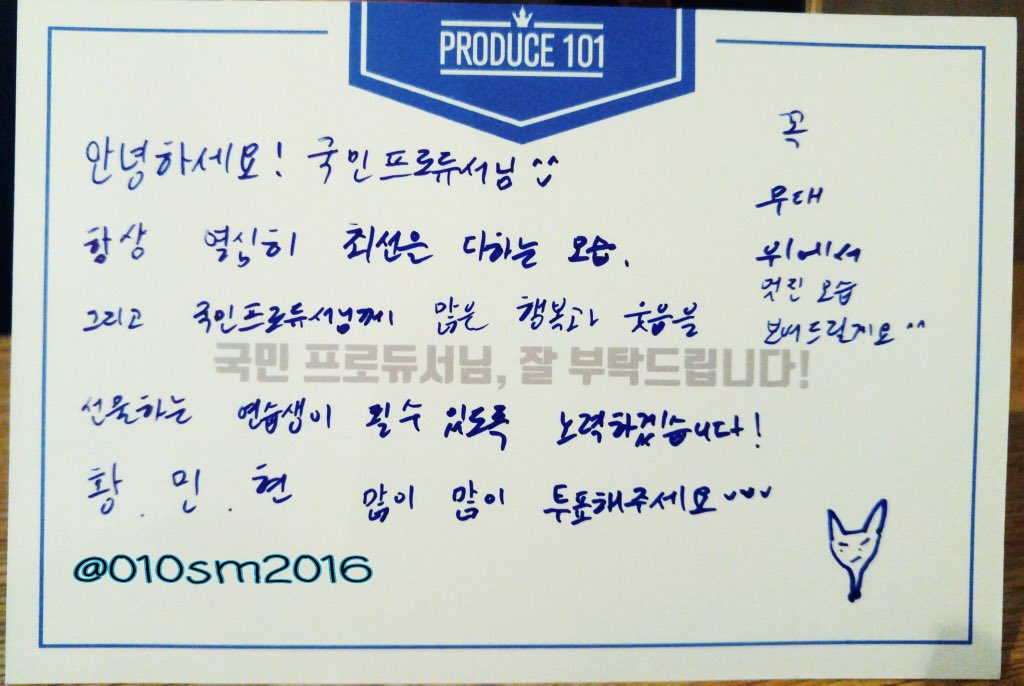 PRODUCE 101
안녕하세요! 국민프로듀서님 ^^
항상 열심히 최선을 다하는 모습.
그리고 국민프로듀서님께 많은 행복과 웃음을
국민 프로듀서님, 잘 부탁드립니다!
선물하는 연습생이 될 수 있도록 노력하겠습니다!
황.민.현 많이 많이 투표해주세요
꼭
무대
위에서
멋진 모습
보여드릴게요 ^^
@010sm2016